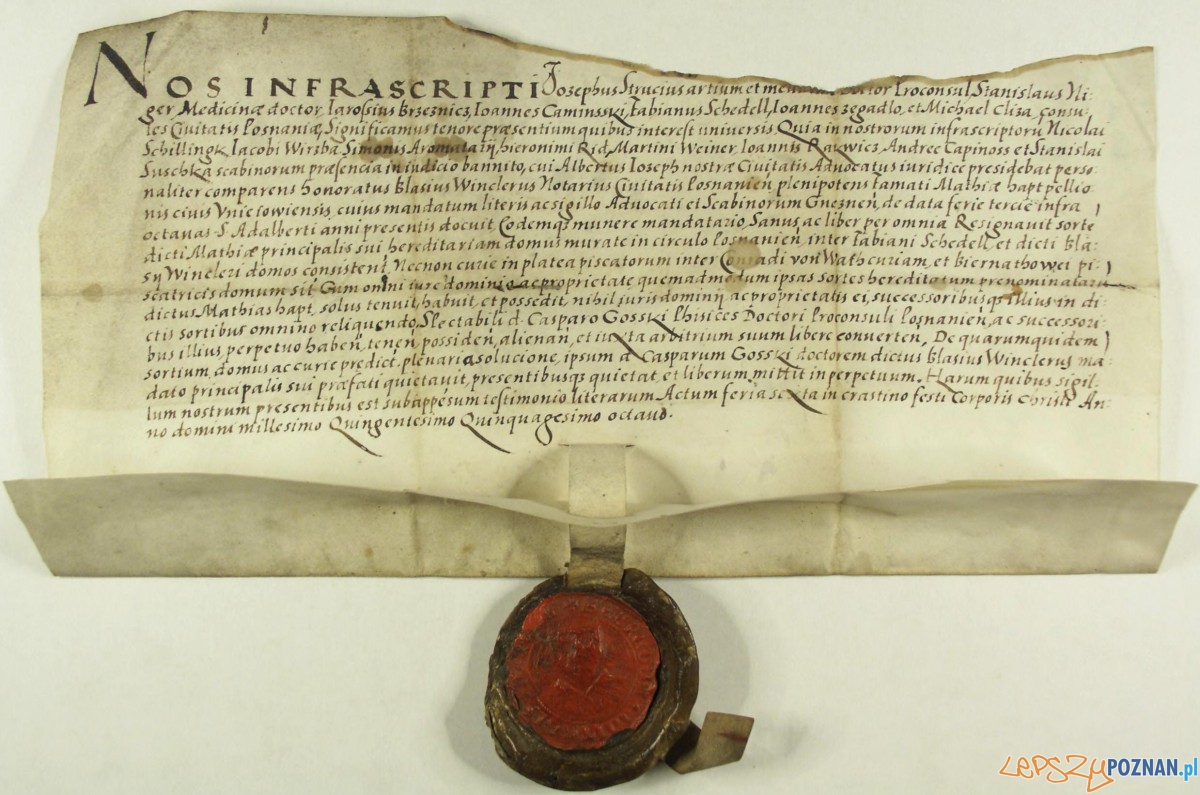 NOS INFRASCRIPTI Jozephus Strucius artium et Doctor Proconsul Stanislaus Ni-
ger, Medicinæ doctor, Jarossius Brzeznicz, Joannes Caminsski, Fabianus Schedell, Joannes zegadlo, et Michael Cliza, Consu-
les Civitatis Posnaniæ, Significamus tenore præsentium quibus interest universis, Quia in nostrorum infrascriptorũ Nicolai
Schillingk, Jacobi Wirzba, Simonis Aromatarij, hieronimi Rid, Martini Weiner, Joannis Rakwicz, Andreę Capinoss et Stanislai
Suschka scabinorum præsencia in iudicio bannito, cui Albertus Joseph nostræ Civitatis Advocatus iuridice presidebat perso-
naliter comparens honoratus Blasius Winclerus Notarius Civitatis Posnanien, plenipotens famati Mathiæ hapt pellio-
nis civis Vnieiowiensis, cuius mandatum literis ac sigillo Advocati et Scabinorum Gnesnen, de data ferie tercie infra
octavas S. Adalberti anni presentis docuit, Eodemqȝ munere mandatario, Sanus ac liber per omnia Resignavit sorte
dicti Mathiæ principalis sui hereditariam domus murate in circulo Posnanien, inter Fabiani Schedell, et dicti Bla-
sij Wincleri domos consisten, Necnon curie in platea piscatorum inter Conradi von Wath curiam, et Biernathowei pi-
scatricis domum sit Cum omni iure dominio ac proprietate quemadmodum ipsas sortes hereditatum prenominataru
dictus Mathias hapt, solus tenuit, habuit, et possedit, nihil iuris dominij ac proprietatis ei, successoribusqȝ illius in di-
ctis sortibus omnino reliquendo, Spectabili d. Casparo Gosski Phisices Doctori Proconsuli Posnanien, ac successori-
bus illius, perpetuo haben, tenen, possiden, alienan, et iuxta arbitrium suum libere converten, De quarumquidem
sortium, domus ac curie predict, plenaria solucione, ipsum d. Casparum Gosski doctorem dictus Blasius Winclerus ma-
dato principalis sui præfati quietavit, presentibusqȝ quietat, et liberum mittit in perpetuum. Harum quibus sigil-
lum nostrum presentibus est subappesum testimonio literarum, Actum feria sexta in crastino festi Corporis Christi An-
no domini millesimo Quingentesimo Quinquagesimo octavo.
LEPSZY POZNAN.pl